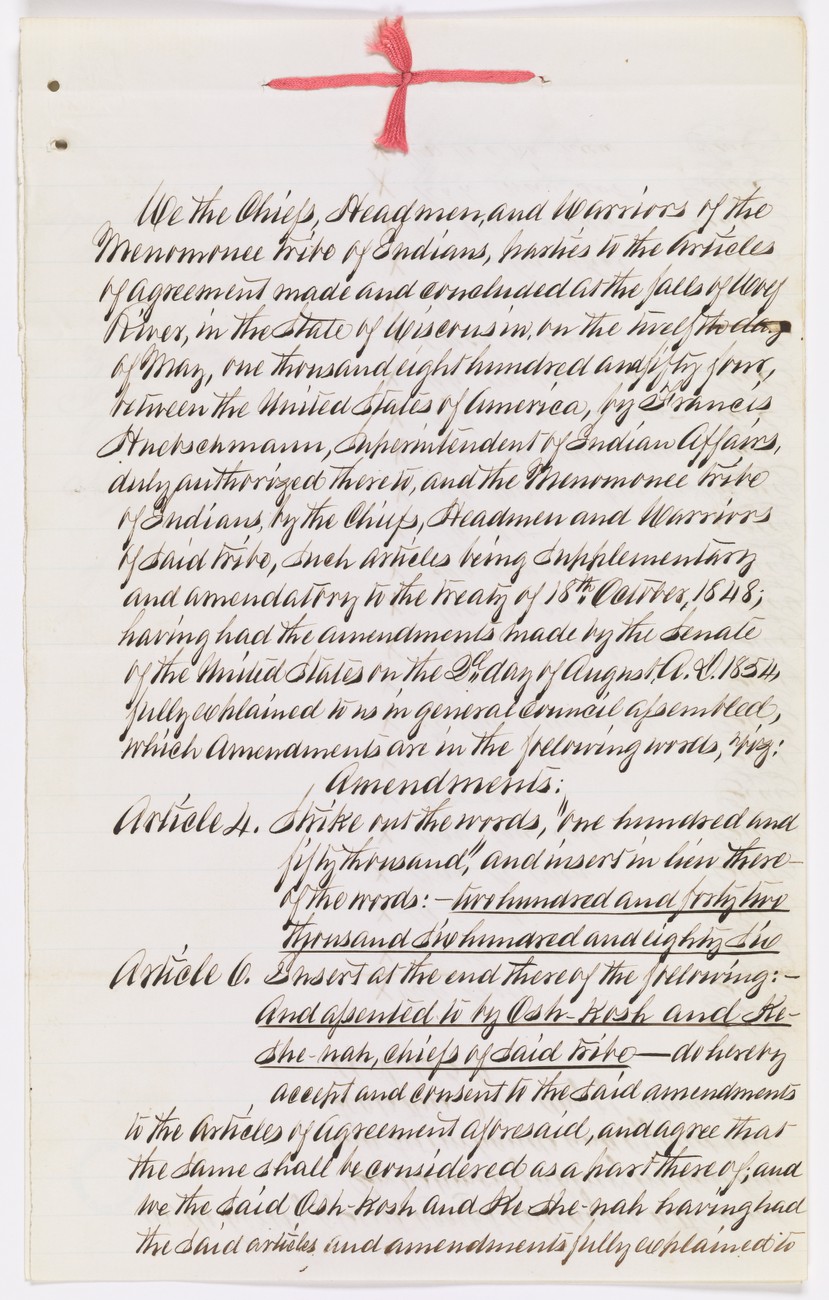 We the Chiefs, Headmen, and Warriors of the
Menomonee tribe of Indians, parties to the Articles
of agreement made and concluded at the falls of Wolf
River, in the State of Wisconsin, on the twelfth day
of May, one thousand eight hundred and fifty four,
between the United States of America, by Francis
Huebschmann, Superintendent of Indian Affairs,
duly authorized thereto, and the Menomonee tribe
of Indians, by the Chiefs, Headmen and Warriors
of said tribe, such articles being supplementary
and amendatory to the treaty of 18th October, 1848;
having had the amendments made by the Senate
of the United States on the 2d day of August, A.D. 1854,
fully explained to us in general council assembled,
which Amendments are in the following words, viz:
Amendments:
Article 4. Strike out the words, "one hundred and
fifty thousand," and insert in lieu there-
of the words:- two hundred and forty two
thousand six hundred and eighty six
Article 6. Insert at the end thereof the following:-
And assented to by Osh-Kosh and Ke-
she-nah, chiefs of said tribe — do hereby
accept and consent to the said amendments
to the Articles of Agreement aforesaid, and agree that
the same shall be considered as a part thereof; and
we the said Osh-Kosh and Ke-she-nah having had
the said articles, and amendments fully explained to